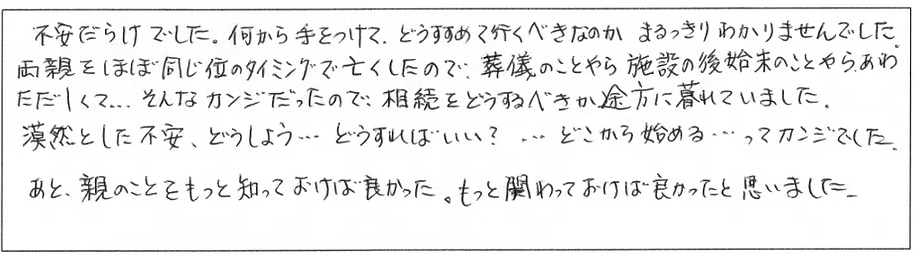 不安だらけでした。何から手をつけて、どうすすめて行くべきなのか まるっきりわかりませんでした
両親をほぼ同じ位のタイミングで亡くしたので、葬儀のことやら施設の後始末のことやら、あわ
ただしくて… そんなカンジだったので、相続をどうするべきか途方に暮れていました。
漠然とした不安、どうしよう… どうすればいい? … どこから始める… ってカンジでした。
あと、親のことをもっと知っておけば良かった。もっと関わっておけば良かったと思いました。